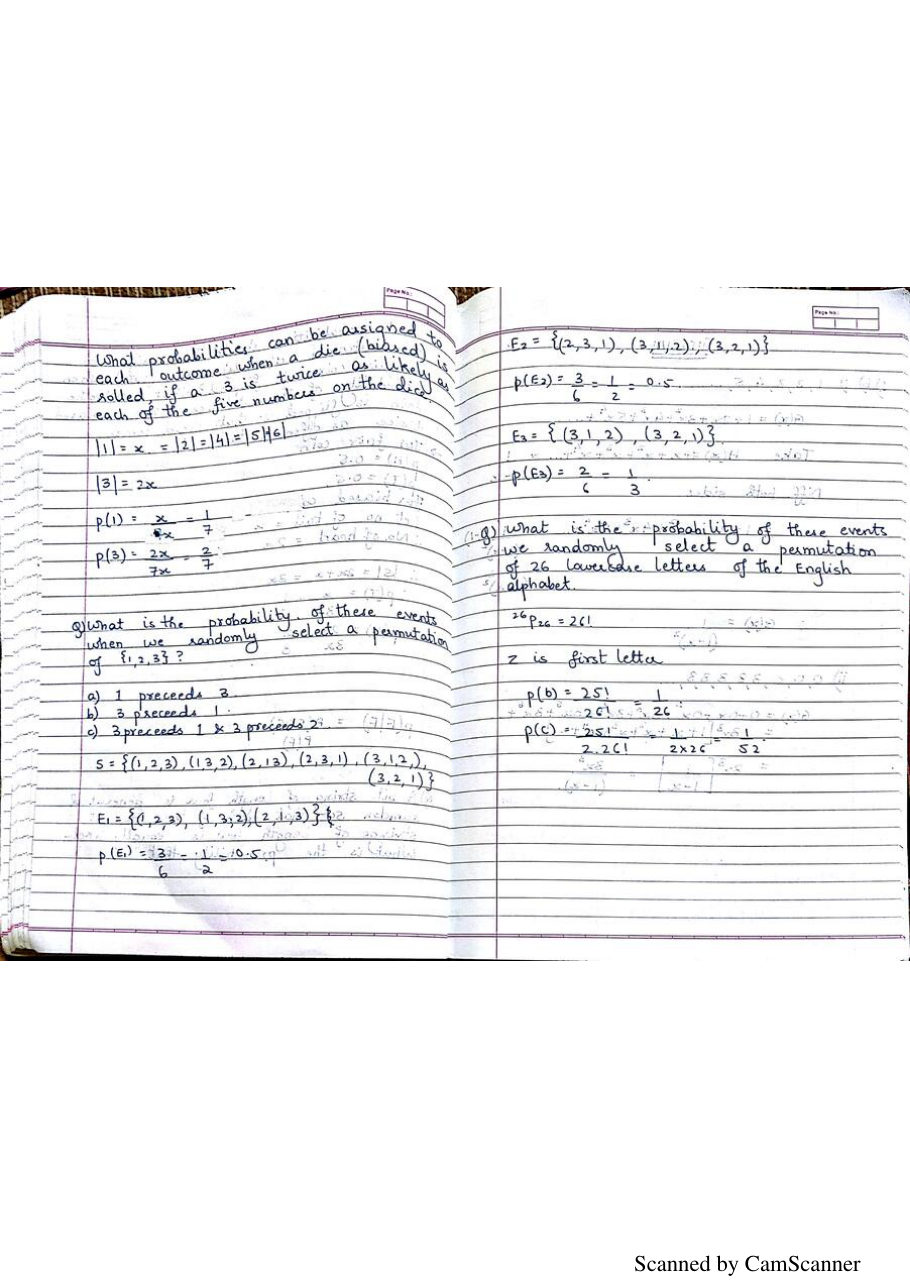 Page No:
What probabilities can be assigned to
each outcome when a die (biased) is
rolled, if a 3 is twice as likely as
each of the five numbers on the dice
|1| = x = |2| = |4| = |5| |6|
|3| = 2x
p(1) = x/7x = 1/7
p(3) = 2x/7x = 2/7
Q) What is the probability of these events
when we randomly select a permutation
of {1,2,3} ?
a) 1 preceeds 3.
b) 3 preceeds 1.
c) 3 preceeds 1 & 3 preceeds 2.
S = {(1,2,3), (13,2), (2,13), (2,3,1), (3,1,2,),
(3,2,1)}
E1 = {(1,2,3), (1,3,2), (2,1,3)}
p(E1) = 3/6 = 1/2 = 0.5
Page No:
E2 = {(2,3,1), (3,1,2), (3,2,1)}
p(E2) = 3/6 = 1/2 = 0.5
E3 = {(3,1,2), (3,2,1)}
p(E3) = 2/6 = 1/3
Q) What is the probability of these events
we randomly select a permutation
of 26 lowercase letters of the English
alphabet.
26P26 = 26!
z is first letter
p(b) = 25!/26! = 1/26
p(c) = 25!/2.26! = 1/2x26 = 1/52
Scanned by CamScanner